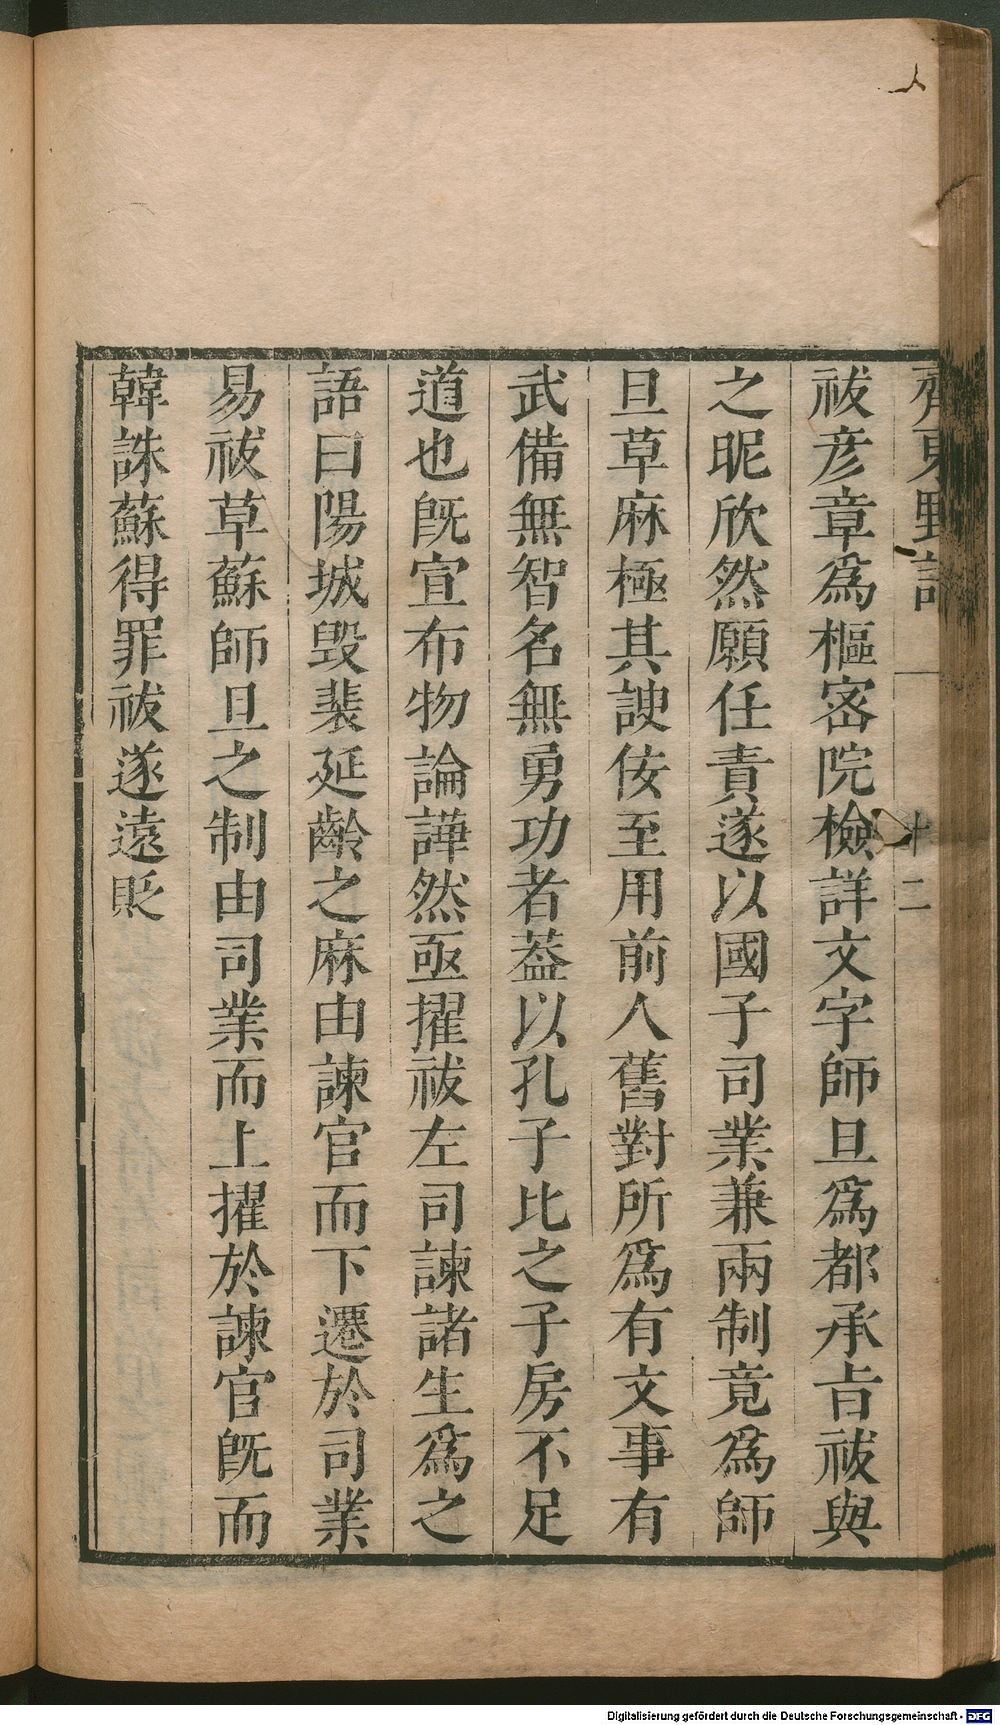 齊東野語
十二
祓彦章爲樞宻院檢詳文字師旦爲都承旨祓與
之昵欣然願任責遂以國子司業兼兩制竟爲師
旦草麻極其諛佞至用前人舊對所爲有文事有
武備無智名無勇功者葢以孔子比之子房不足
道也旣宣布物論譁然亟擢祓左司諫諸生爲之
語曰陽城毁裴延齡之麻由諫官而下遷於司業
易祓草蘇師旦之制由司業而上擢於諫官旣而
韓誅蘇得罪祓遂遠貶
Digitalisierung gefördert durch die Deutsche Forschungsgemeinschaft - DFG